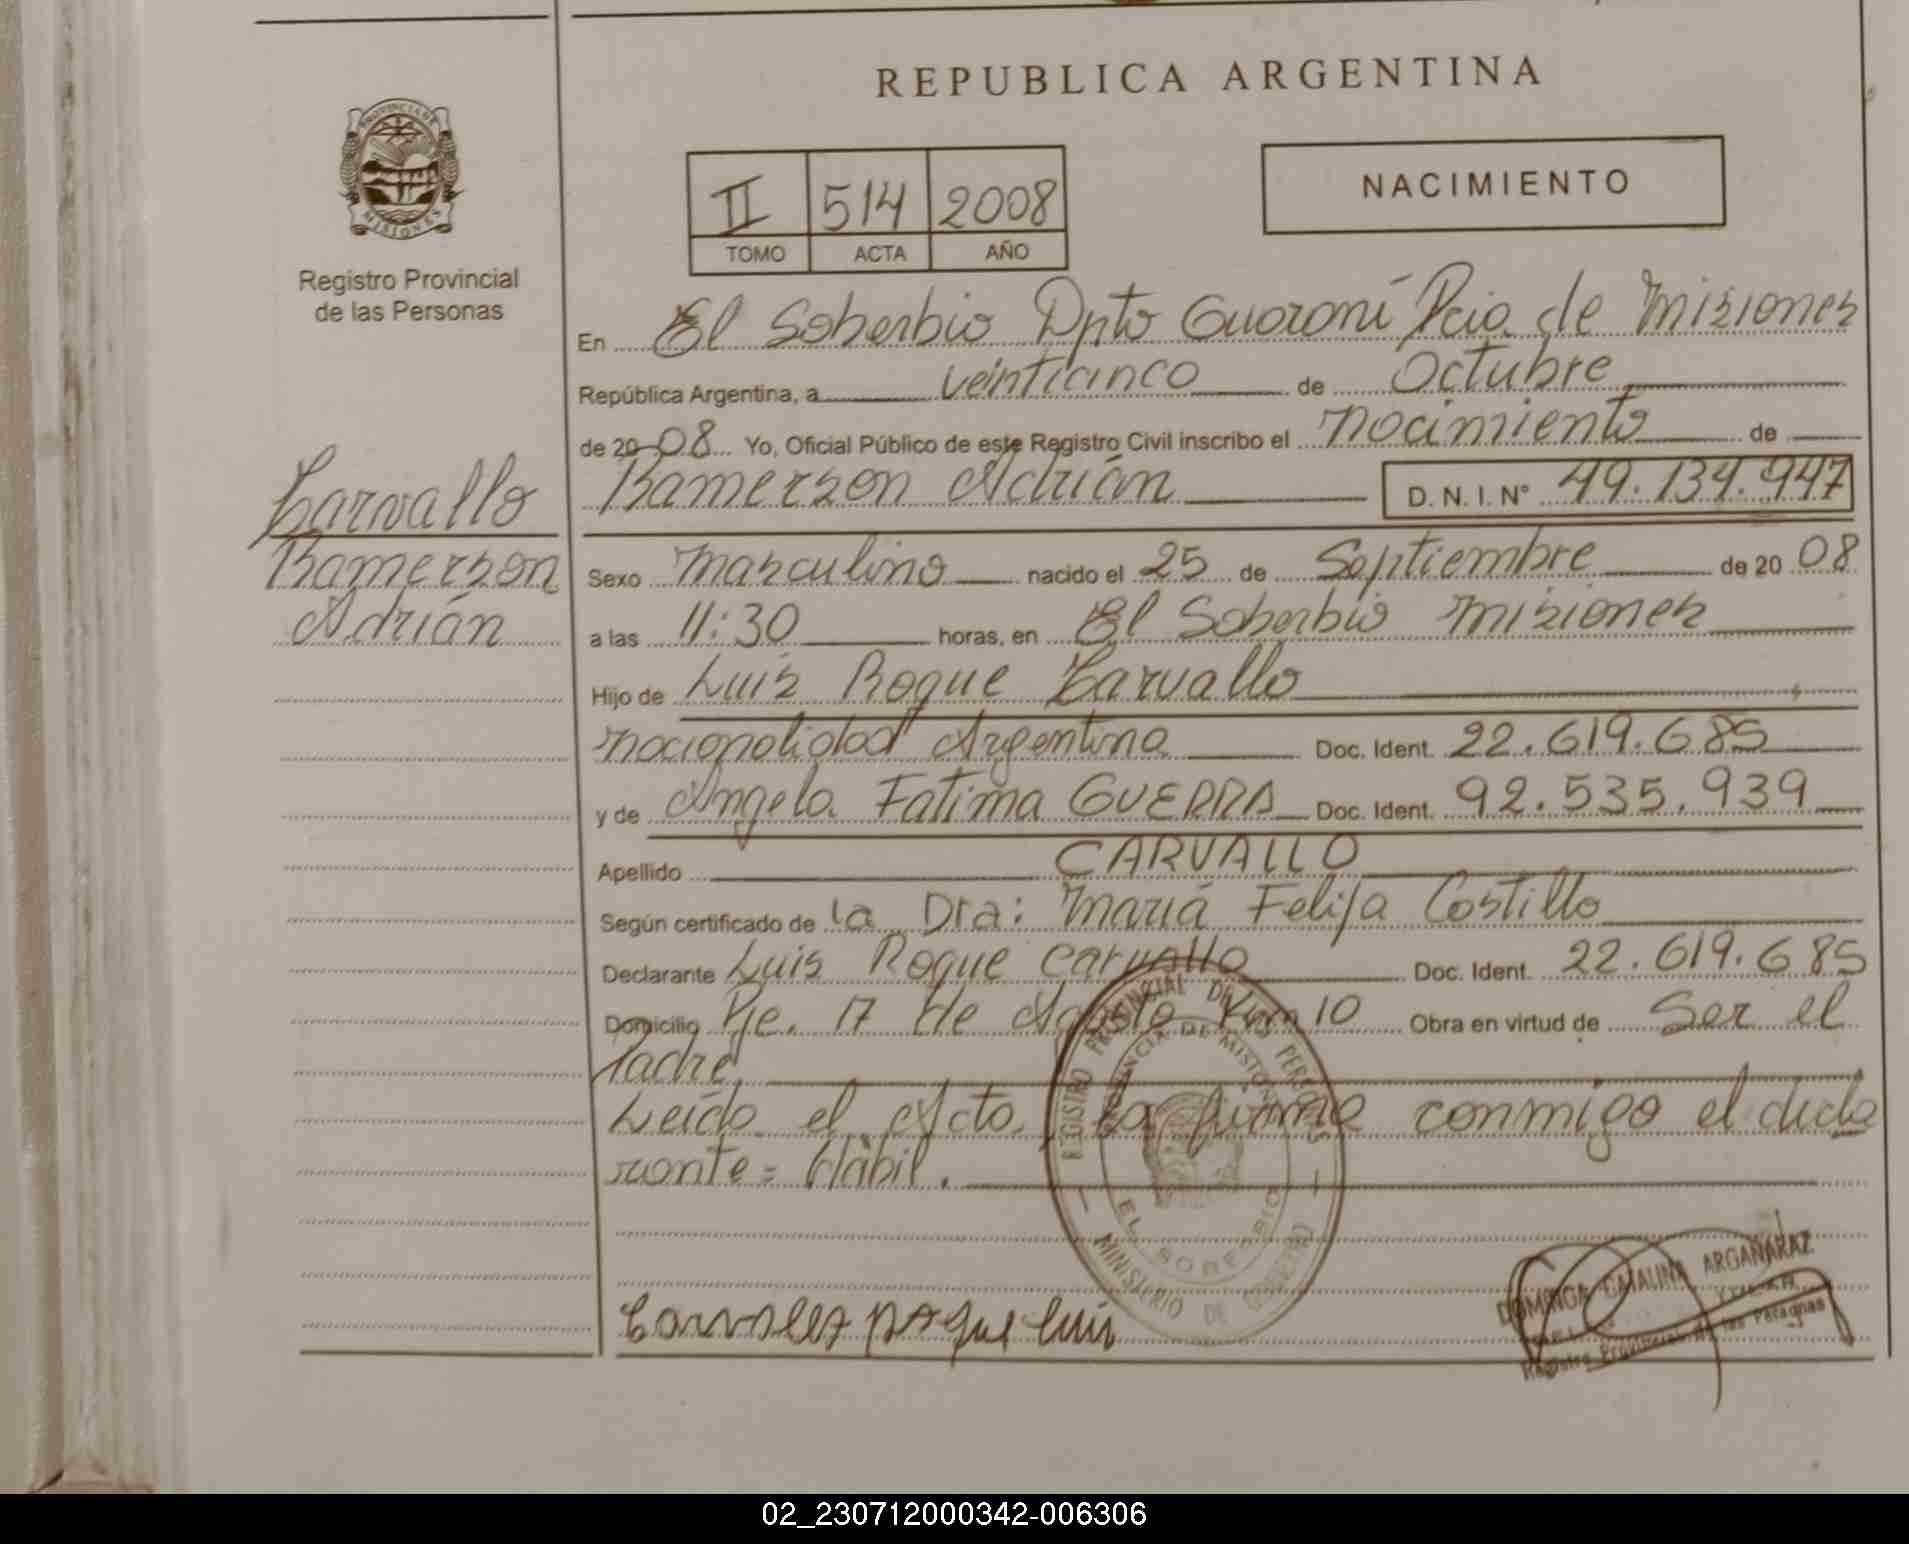 REPUBLICA ARGENTINA
PROVINCIA DE
MISIONES
Registro Provincial
de las Personas
II 514 2008
TOMO ACTA AÑO
NACIMIENTO
En El Soberbio Dpto Guaraní Pcia de Misiones
República Argentina, a veinticinco de Octubre
de 20 08 Yo, Oficial Público de este Registro Civil inscribo el nacimiento de
Ramerson Adrián D. N. I. N° 49.134.947
Carvallo
Ramerson
Adrián
Sexo masculino nacido el 25 de Septiembre de 20 08
a las 11:30 horas, en El Soberbio Misiones
Hijo de Luis Roque Carvallo
nacionalidad Argentina Doc. Ident. 22.619.685
y de Angela Fatima GUERRA Doc. Ident. 92.535.939
Apellido CARVALLO
Según certificado de la Dra: María Felisa Costillo
Declarante Luis Roque Carvallo Doc. Ident. 22.619.685
Domicilio Pje. 17 de Agosto Km 10 Obra en virtud de Ser el
Padre
Leído el Acta, la firma conmigo el decla
rante = Hábil.
REGISTRO PROVINCIAL DE LAS PERSONAS
PROVINCIA DE MISIONES
EL SOBERBIO
MINISTERIO DE GOBIERNO
Roque Luis
DOMINGA CATALINA ARGAÑARAZ
Registro Provincial de las Personas
02_230712000342-006306